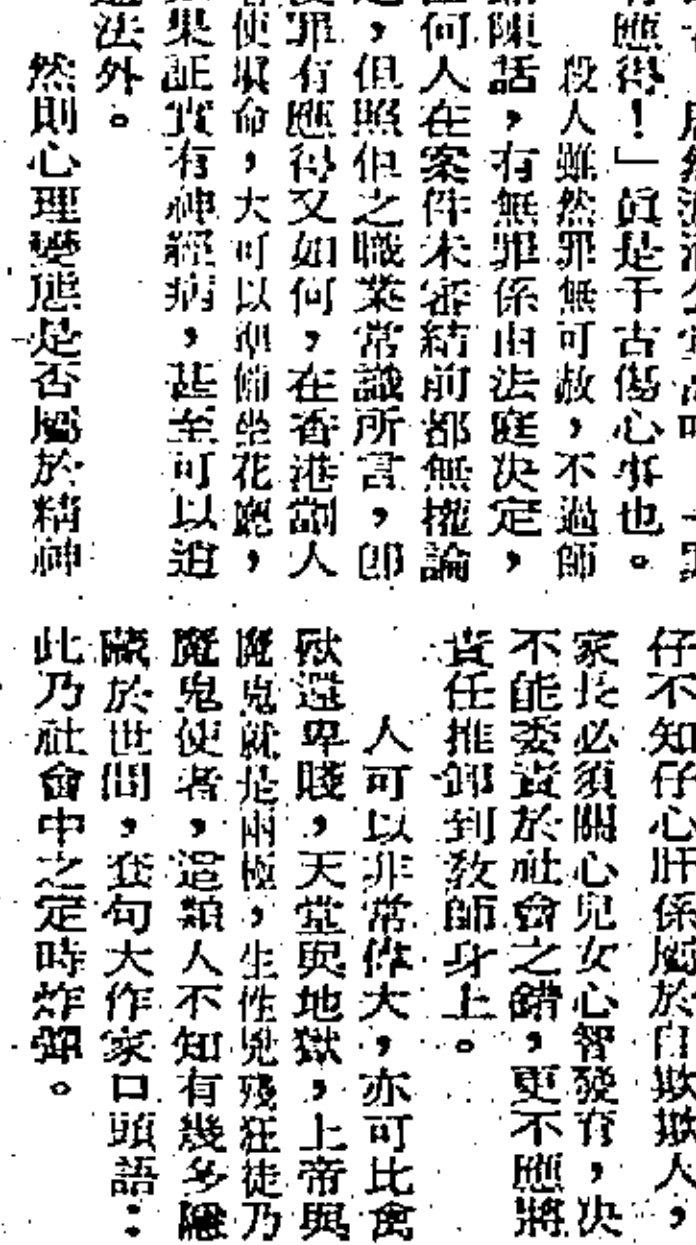 應得!」眞是千古傷心事也。
殺人雖然罪無可赦,不過師
陳話,有無罪係由法庭決定,
何人在案件未審結前都無權論
,但照佢之職業常識所言,即
罪有應得又如何,在香港劏人
使填命,大可以準備坐花廳,
果証實有神經病,甚至可以逍
法外。
然則心理變態是否屬於精神
仔不知仔心肝係屬於自欺欺人,
家長必須關心兒女心智發育,决
不能委責於社會之錯,更不應將
責任推卸到敎師身上。
人可以非常偉大,亦可比禽
獸還卑賤,天堂與地獄,上帝與
魔鬼就是兩極,生性兇殘狂徒乃
魔鬼使者,這類人不知有幾多隱
藏於世間,套句大作家口頭語:
此乃社會中之定時炸彈。